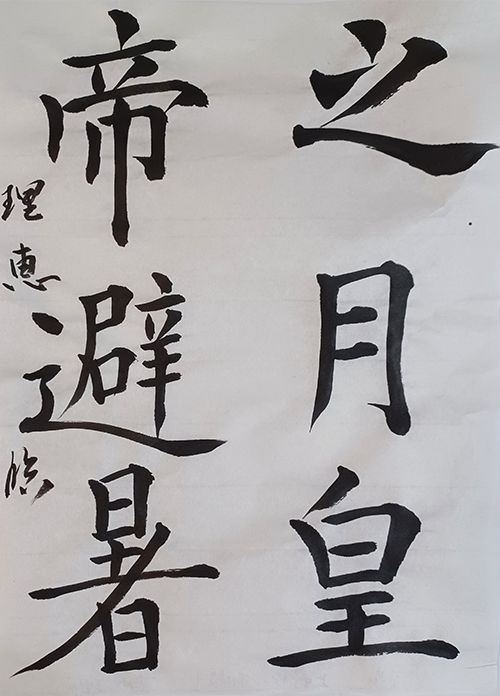 之月皇
帝避暑
理恵 臨